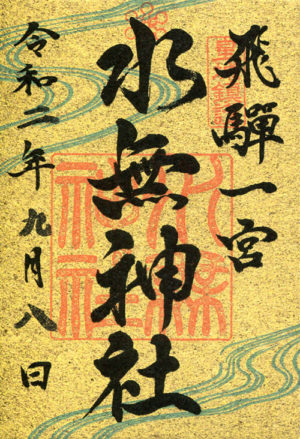 飛驒一宮
水無神社
令和二年九月八日